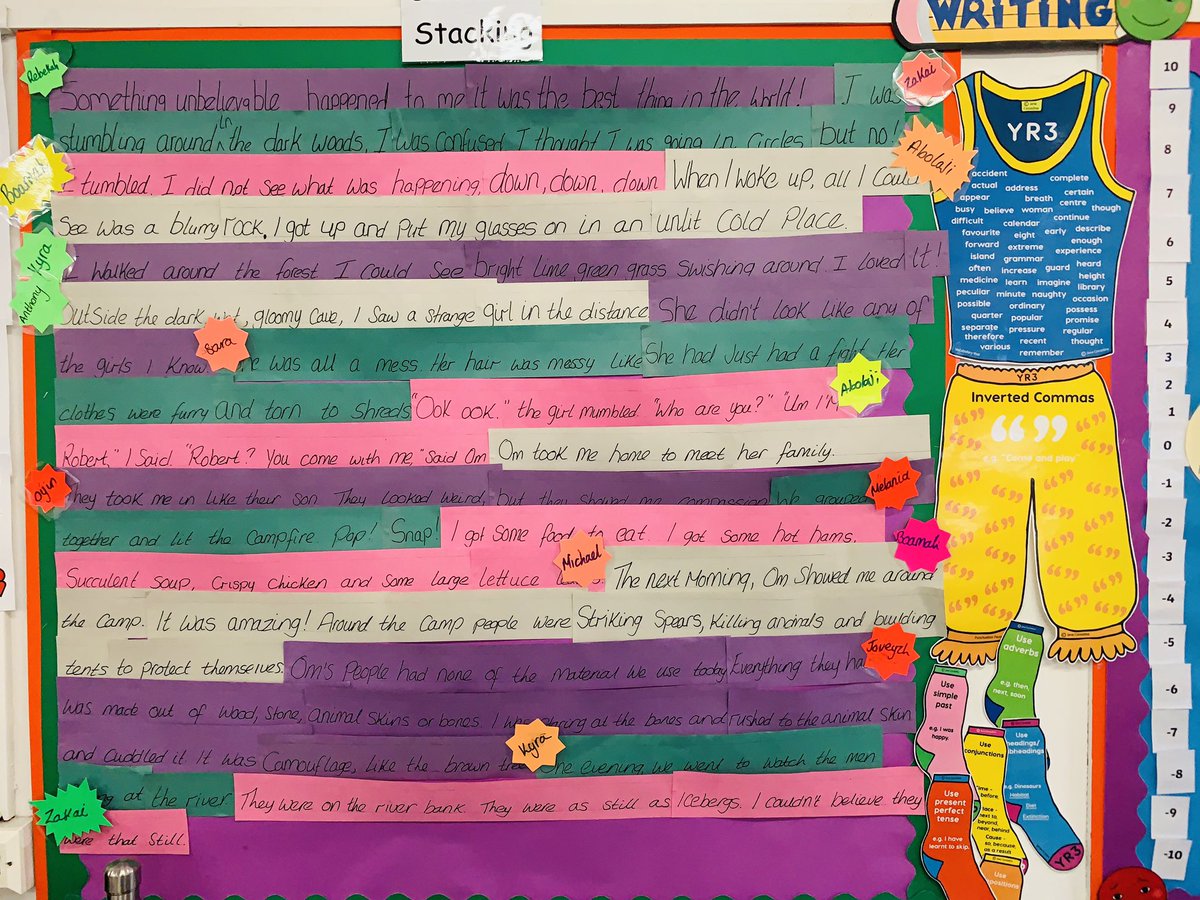 Stacking
WRITING
Rebekah
Zakai
Something unbelievable happened to me It was the best thing in the world! I was
stumbling around in the dark woods, I was confused I thought I was going in circles but no!
Abolaji
I tumbled, I did not see what was happening, down, down, down When I woke up, all I could
see was a blurry rock. I got up and Put my glasses on in an unlit cold Place.
Kyra
I walked around the forest I could see bright lime green grass swishing around I loved it!
Anthony
Outside the dark wet, gloomy cave, I saw a strange girl in the distance She didn't look like any of
Sara
the girls I know. was all a mess. Her hair was messy like She had Just had a fight. Her
Abolaji
clothes were furry and torn to shreds "Ook ook." the girl mumbled. "Who are you?" "Um I'm
Robert," I said. "Robert? You come with me," said Om Om took me home to meet her family.
Oyin
Melania
They took me in like their son. They looked weird, but they showed me compassion We grouped
together and lit the campfire Pop! Snap! I got some food to eat. I got some hot hams,
Michael
Succulent soup, crispy chicken and some large lettuce The next Morning, Om Showed me around
the camp. It was amazing! Around the camp people were Striking Spears, killing animals and building
tents to protect themselves Om's People had none of the material we use today Everything they ha
was made out of wood, stone, animal skins or bones. I was at the bones and rushed to the animal skin
Kyra
and cuddled it It was Camouflage, like the brown One evening, we went to watch the men
Zakai
at the river They were on the river bank. They were as still as Icebergs. I couldn't believe they
were that still.
YR3
accident complete
actual address certain
appear breath centre
busy believe woman though
difficult calendar continue
favourite eight early describe
forward extreme enough
island grammar experience
often increase guard heard
medicine learn imagine height
peculiar minute naughty library
possible ordinary occasion
quarter popular possess
separate pressure promise
therefore recent regular
various remember thought
YR3
Inverted Commas
e.g. "Come and play"
Use adverbs
e.g. then, next, soon
Use simple past
e.g. I was happy.
Use conjunctions
Use headings/
e.g. Dinosaurs
Habitat
Diet
Extinction
Use present perfect tense
e.g. I have learnt to skip.
YR3
10
9
8
7
6
5
4
3
2
1
0
-1
-2
-3
-4
-5
-6
-7
-8
-9
-10